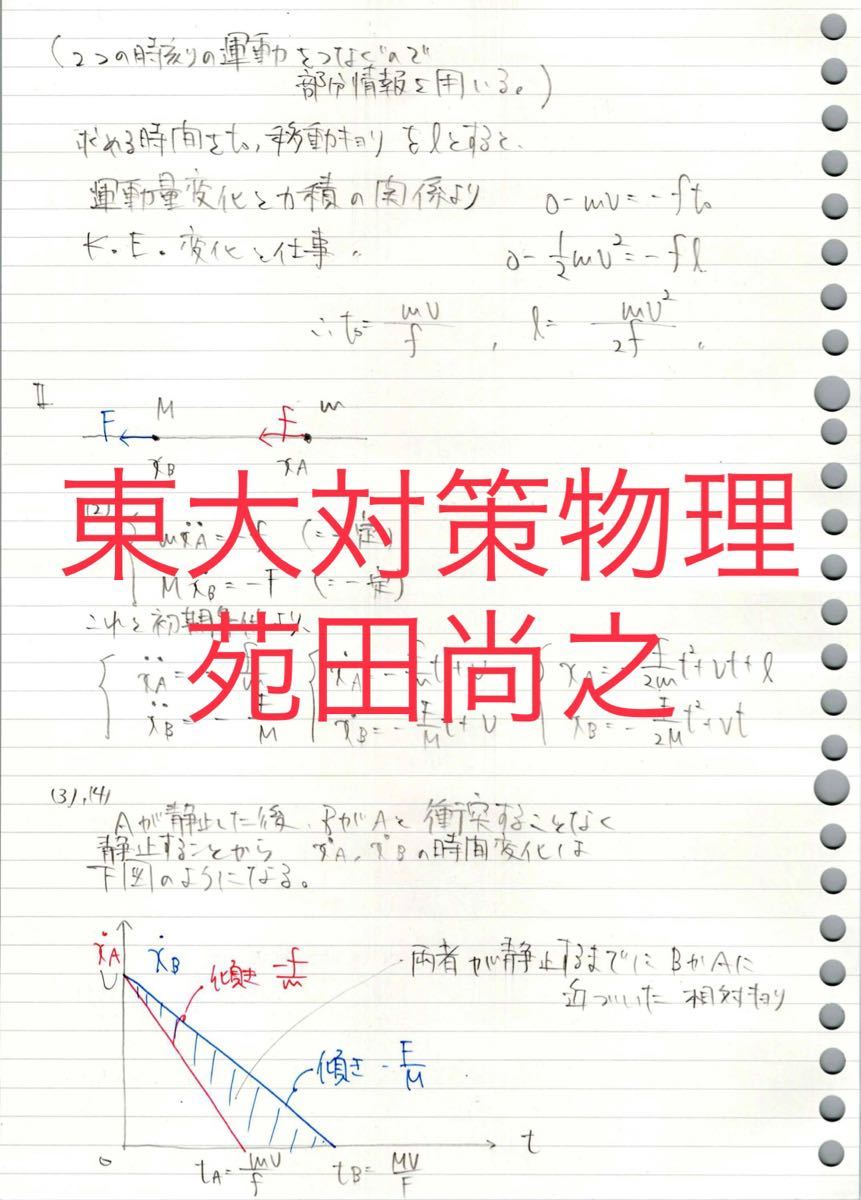 (2つの時刻の運動をつなぐので
部分情報を用いる。)
求める時間をt₀, 移動キョリをlとすると、
運動量変化と力積の関係より 0-mv=-ft₀
K.E.変化と仕事 〃 0-1/2mv²=-fl
∴t₀=mv/f , l=mv²/2f .
II
F M f m
x_B x_A
東大対策物理
(2)
mẍ_A=-f (=一定)
Mẍ_B=-F (=一定)
これと初期条件より、
苑田尚之
ẍ_A=-f/m ẋ_A=-f/m t+v x_A=-f/2m t²+vt+l
ẍ_B=-F/M ẋ_B=-F/M t+v x_B=-F/2M t²+vt
(3),(4)
Aが静止した後、BがAと衝突することなく
静止することから ẋ_A, ẋ_Bの時間変化は
下図のようになる。
ẋ_A ẋ_B
傾き -f/m
両者が静止するまでにBがAに
近づいた相対キョリ
v
傾き -F/M
0 t
t_A=mv/f t_B=MV/F